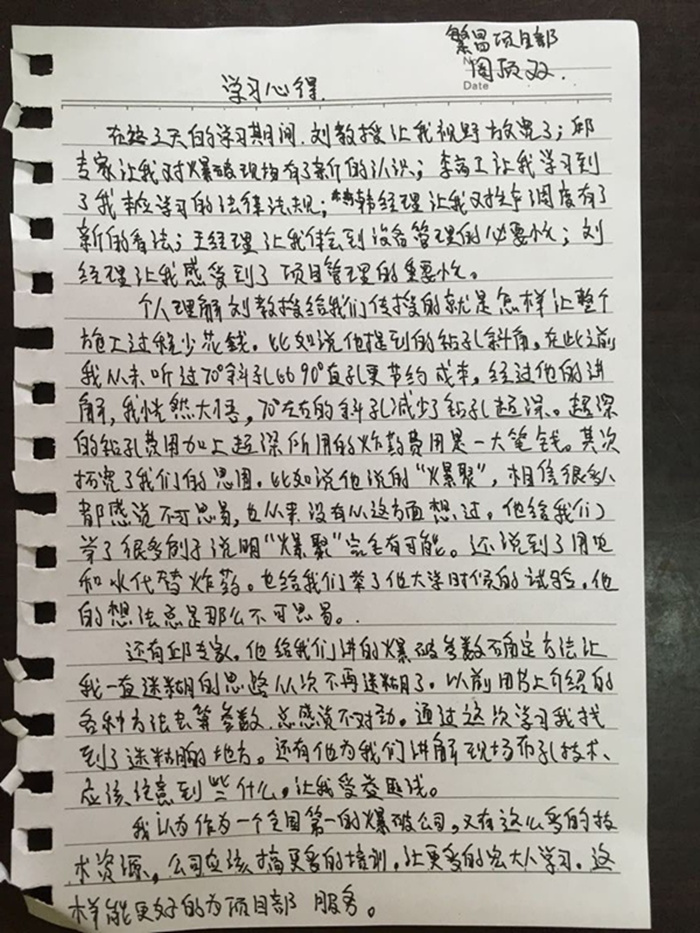 繁昌项目部
No
周顶双.
Date
学习心得.
在这3天的学习期间.刘教授让我视野放宽了；邱
专家让我对爆破现场有了新的认识；李高工让我学习到
了我本应学习的法律法规；韩经理让我对生产调度有了
新的看法；王经理让我体会到设备管理的必要性；刘
经理让我感受到了项目管理的重要性。
个人理解刘教授给我们传授的就是怎样让整个
施工过程少花钱.比如说他提到的钻孔斜角,在此之前
我从未听过70°斜孔比90°直孔更节约成本,经过他的讲
解,我恍然大悟,70°左右的斜孔减少了钻孔超深。超深
的钻孔费用加上超深所用的炸药费用是一大笔钱。其次
拓宽了我们的思围.比如说他说的“爆聚”,相信很多人
都感觉不可思易,也从来没有从这方面想过,他给我们
举了很多例子说明“爆聚”完全有可能。还说到了用电
和水代替炸药。也给我们举了他大学时候的试验.他
的想法总是那么不可思易。
还有邱专家.他给我们讲的爆破参数确定方法让
我一直迷糊的思路从次不再迷糊了.以前用书上介绍的
各种方法去算参数.总感觉不对劲。通过这次学习我找
到了迷糊的地方。还有他为我们讲解现场布孔技术、
应该注意到些什么,让我受益匪浅。
我认为作为一个全国第一的爆破公司,又有这么多的技
术资源,公司应该搞更多的培训,让更多的宏大人学习.这
样能更好的为项目部服务。